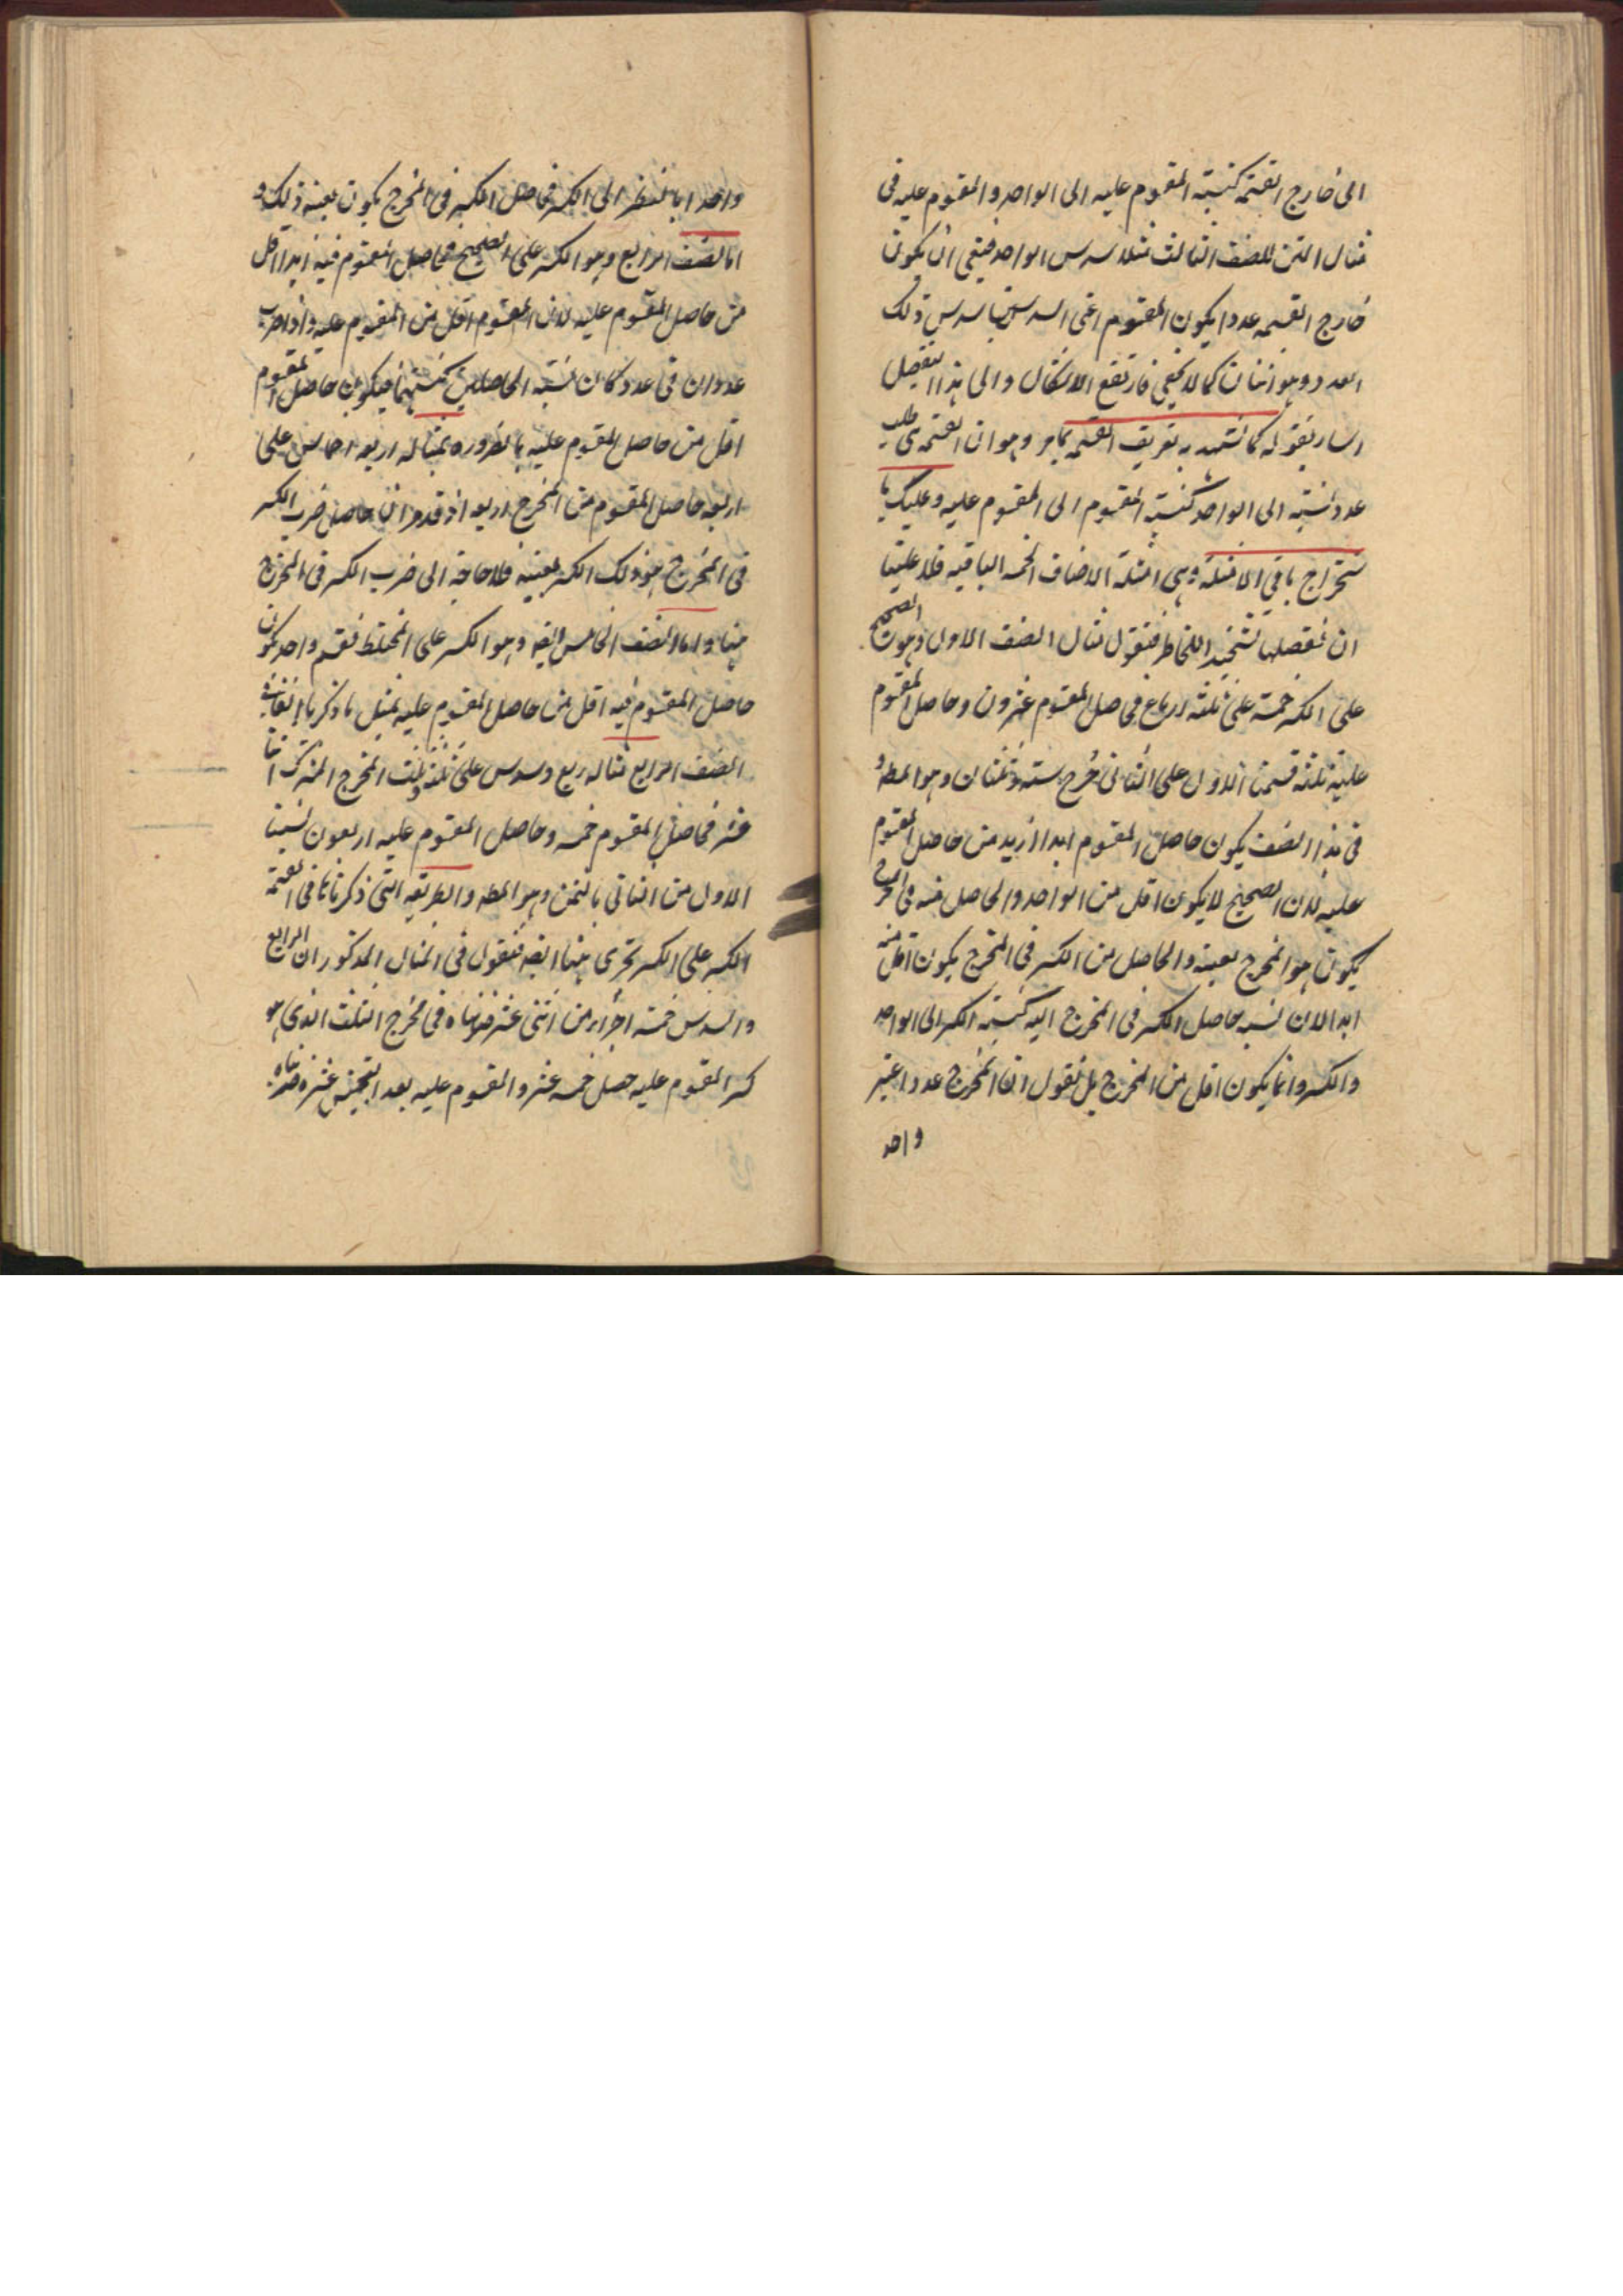 الى خارج القسمة كنسبة المقسوم عليه الى الواحد والمقسوم عليه فى
مثال المتن للصنف الثالث مثلا سدس الواحد فينبغى ان يكون
خارج القسمه عددا يكون المقسوم اعنى السدسين سدس ذلك
العدد وهو اثنان كما لا يخفى فارتفع الاشكال والى هذا التفصيل
اشار بقوله كما تشهد به تعريف القسمه بما مر وهو ان القسمة هى طلب
عدد نسبته الى الواحد كنسبة المقسوم الى المقسوم عليه وعليك با
ستخراج باقى الامثلة وهى امثلة الاصناف الخمسه الباقيه فلا علينا
ان نفصلها تشحيذا للخاطر فنقول مثال الصنف الاول وهو الصحيح
على الكسر خمسة على ثلثة ارباع فحاصل المقسوم عشرون وحاصل المقسوم
عليه ثلثه قسمنا الاول على الثانى خرج ستة وثلثان وهو المط و
فى هذا الصنف يكون حاصل المقسوم ابدا ازيد من حاصل المقسوم
عليه لان الصحيح لا يكون اقل من الواحد والحاصل منه فى المخرج
يكون هو المخرج بعينه والحاصل من الكسر فى المخرج يكون اقل منه
ابدا لان نسبه حاصل الكسر فى المخرج اليه كنسبة الكسر الى الواحد
والكسر انما يكون اقل من المخرج بل نقول ان المخرج عدد اعتبر
واحد
واحدا بالنظر الى الكسر فحاصل الكسر فى المخرج يكون بعينه ذلك و
اما الصنف الرابع وهو الكسر على الصحيح فحاصل المقسوم فيه ابدا اقل
من حاصل المقسوم عليه لان المقسوم اقل من المقسوم عليه واذا ضرب
عددان فى عدد كان نسبة الحاصلين كنسبتهما فيكون حاصل المقسوم
اقل من حاصل المقسوم عليه بالضروره مثاله اربعه اخماس على
اربعه حاصل المقسوم من المخرج اربعه اذ قد مر ان حاصل ضرب الكسر
فى المخرج هو ذلك الكسر بعينه فلا حاجة الى ضرب الكسر فى المخرج
هنا واما الصنف الخامس ايضا وهو الكسر على المختلط فقسم واحد يكون
حاصل المقسوم فيه اقل من حاصل المقسوم عليه بمثل ما ذكرنا انفا فى
الصنف الرابع مثاله ربع وسدس على ثلثة وثلث المخرج المشترك اثنا
عشر فحاصل المقسوم خمسه وحاصل المقسوم عليه اربعون نسبنا
الاول من الثانى بالثمن وهو المط والطريقه التى ذكرناها فى القسمة
الكسر على الكسر تجرى هنا ايضا فنقول فى المثال المذكور ان الرابع
والسدس خمسة اجزاء من اثنى عشر ضربناه فى مخرج الثلث الذى هو
كسر المقسوم عليه حصل خمسه عشر والمقسوم عليه بعد التجنيس عشره ضربناه